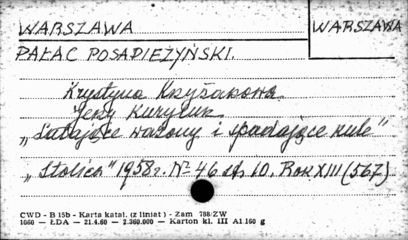 WARSZAWA WARSZAWA
PAŁAC POSADIEŻYŃSKI.
Krystyna Krzyżakowa
Jerzy Kuryluk
„Latające wazony i spadające kule”
„Stolica” 1958 r. № 46 st. 10. Rok XIII (567)
CWD - B 15b - Karta katal. (z liniat) - Zam 788/ZW
1060 — ŁDA — 21.4.60 — 2.360.000 — Karton kl. III A1 160 g